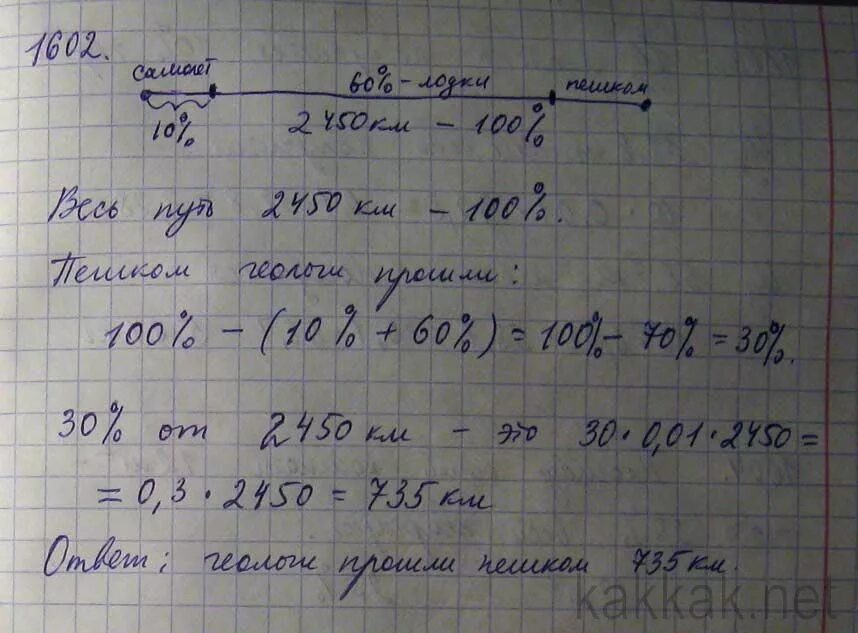 1602.
самолет 60% - лодки пешком
10% 2450 км - 100%
Весь путь 2450 км - 100%.
Пешком геологи прошли:
100% - (10% + 60%) = 100% - 70% = 30%.
30% от 2450 км - это 30 · 0,01 · 2450 =
= 0,3 · 2450 = 735 км
Ответ: геологи прошли пешком 735 км.
kakkak.net